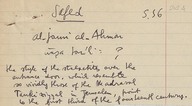 Safed
5.56
al-Jāmiʿ al-Aḥmar
the style of the structure over the
entrance door, which resembles
so vividly those of the Madrasa
Tankiziyya in Jerusalem, point
to the first third of the fourteenth century.